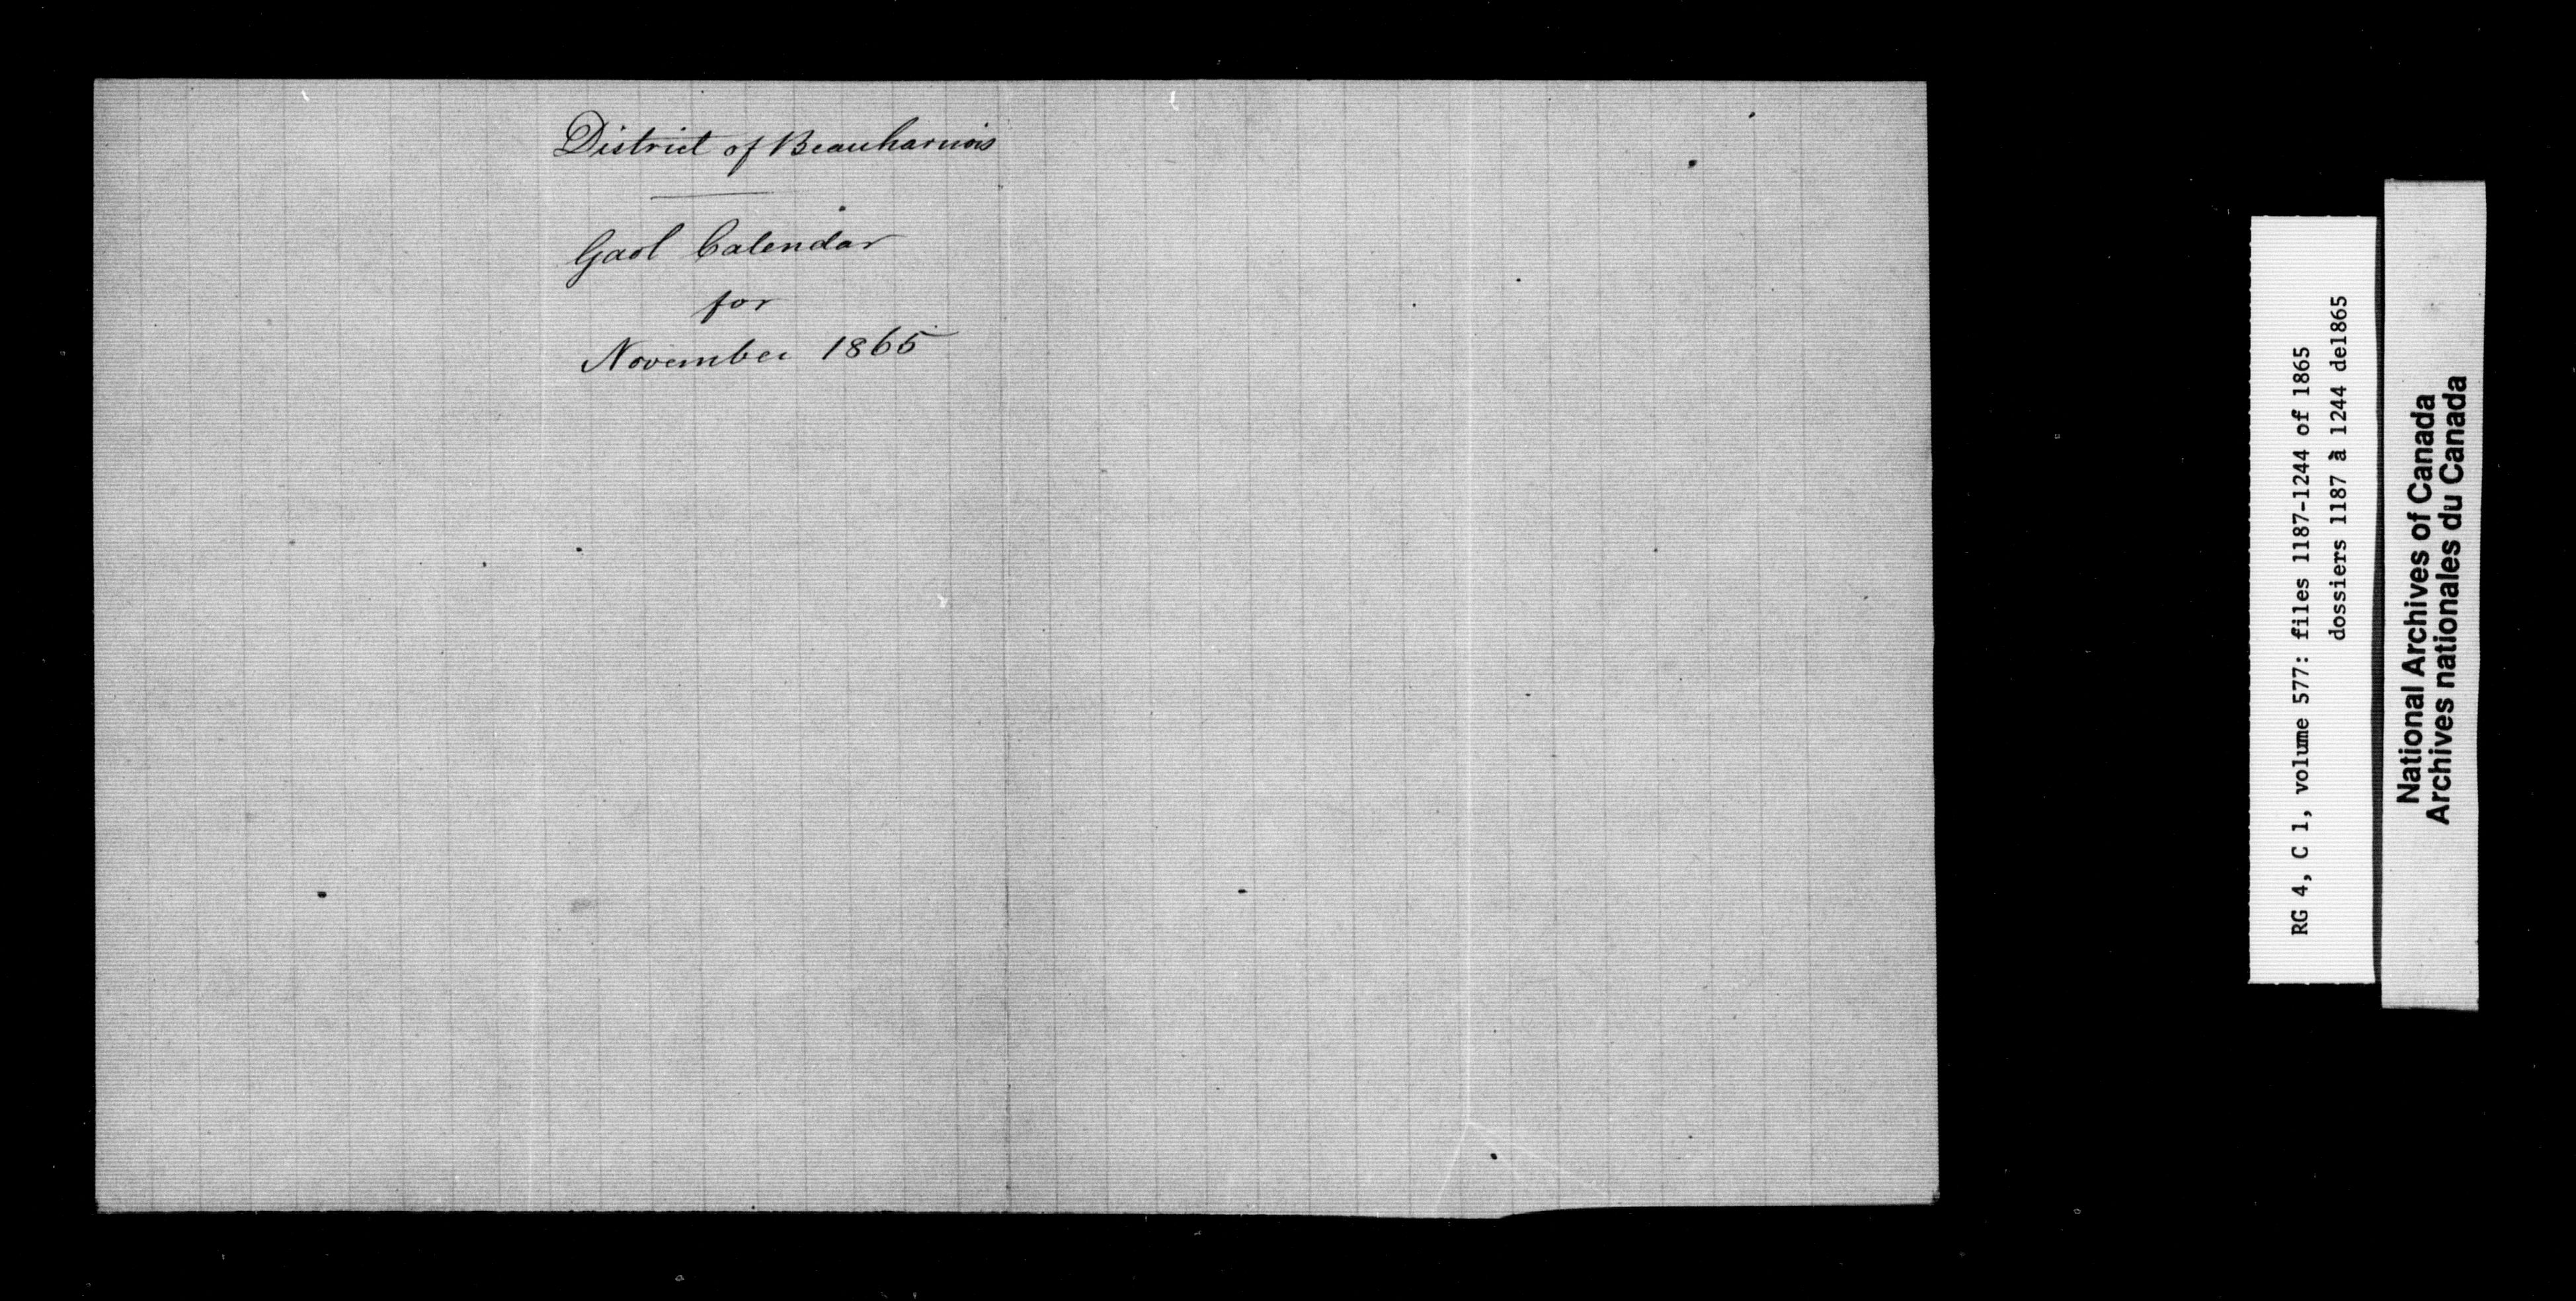 District of Beauharnois
Gaol Calendar
for
November 1865
RG 4, C 1, volume 577: files 1187-1244 of 1865
dossiers 1187 à 1244 de1865
National Archives of Canada
Archives nationales du Canada